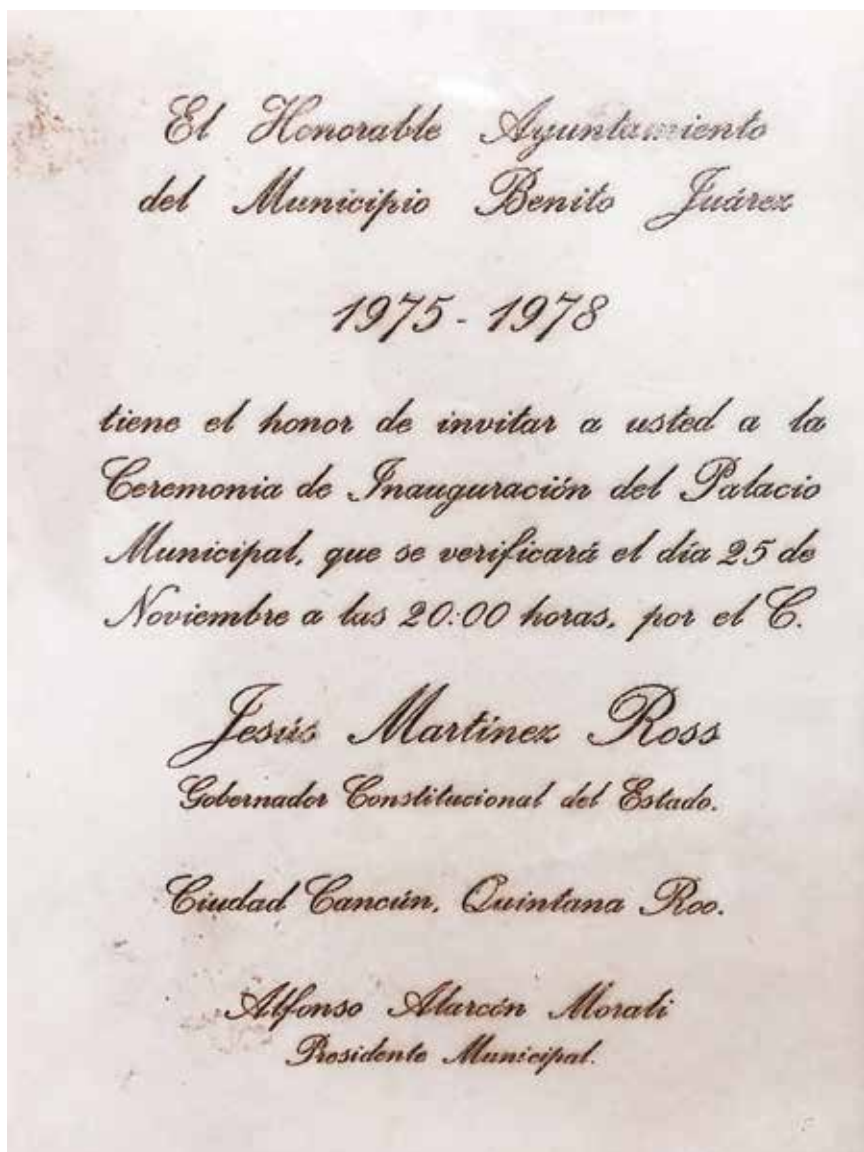 El Honorable Ayuntamiento
del Municipio Benito Juárez
1975 - 1978
tiene el honor de invitar a usted a la
Ceremonia de Inauguración del Palacio
Municipal, que se verificará el día 25 de
Noviembre a las 20:00 horas, por el C.
Jesús Martínez Ross
Gobernador Constitucional del Estado.
Ciudad Cancún, Quintana Roo.
Alfonso Alarcón Morali
Presidente Municipal.